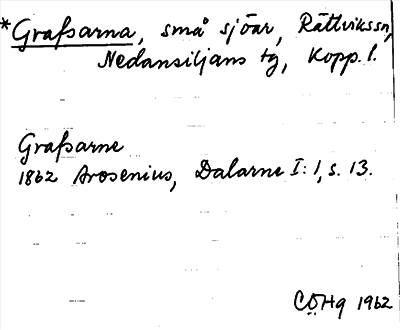 *Grafsarna, små sjöar, Rättvikssn,
Nedansiljans tg, Kopp. l.
Grafsarne
1862 Arosenius, Dalarne I:1, s. 13.
CÖHg 1962